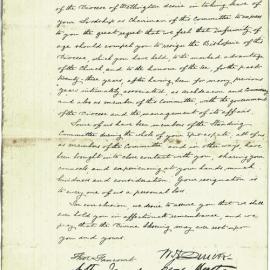 of the Diocese of Wellington desire in taking leave of
your Lordship as Chairman of this Committee to express
to you the great regret that we feel that infirmity of
age should compel you to resign the Bishopric of this
Diocese, which you have held, to the marked advantage
of the Church and to the honour of the See, for the past
twenty-three years, after having been for many previous
years intimately associated, as Archdeacon and Commissary
and also as member of this Committee, with the government
of the Diocese and the management of its affairs.
Some of us have been members of the Standing
Committee during the whole of your Episcopate, all of us
as members of the Committee and in other ways, have
been brought into close contact with you, sharing your
counsels and experiencing at your hands much
kindness and consideration. Your resignation is
to every one of us a personal loss.
In conclusion we desire to assure you that we shall
ever hold you in affectionate remembrance, and we
pray that the Divine blessing may ever rest upon
you and yours.
Thos Fancourt